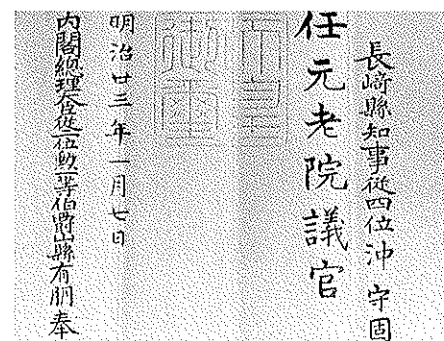 長崎縣知事從四位沖 守固
任元老院議官
天皇
御璽
明治廿三年一月七日
内閣總理大臣從二位勲一等伯爵山縣有朋奉